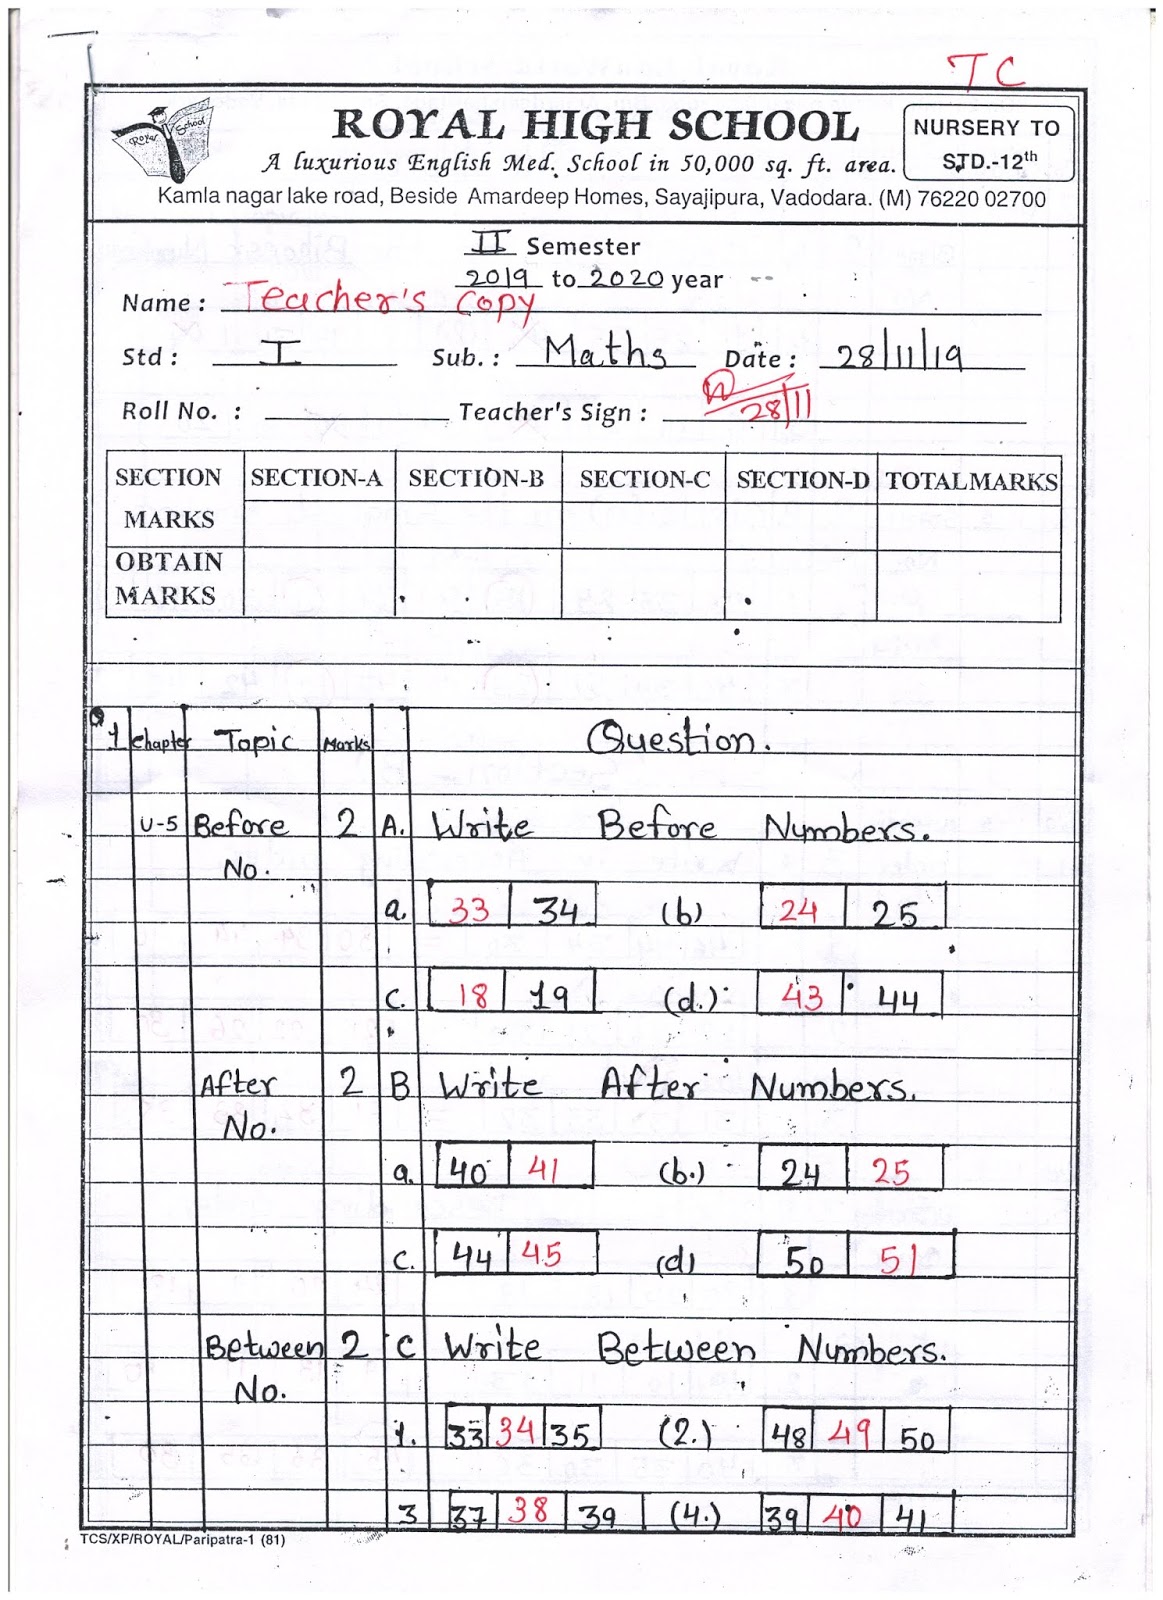 TC
Royal School
ROYAL HIGH SCHOOL
NURSERY TO
STD.-12th
A luxurious English Med. School in 50,000 sq. ft. area.
Kamla nagar lake road, Beside Amardeep Homes, Sayajipura, Vadodara. (M) 76220 02700
II Semester
2019 to 2020 year
Name : Teacher's Copy
Std : I Sub. : Maths Date : 28/11/19
Roll No. : Teacher's Sign : 28/11
SECTION SECTION-A SECTION-B SECTION-C SECTION-D TOTALMARKS
MARKS
OBTAIN
MARKS
Q 1 Chapter Topic Marks Question.
U-5 Before 2 A. Write Before Numbers.
No.
a. 33 34 (b) 24 25
c. 18 19 (d.) 43 44
After 2 B Write After Numbers.
No.
a. 40 41 (b.) 24 25
c. 44 45 (d) 50 51
Between 2 C Write Between Numbers.
No.
1. 33 34 35 (2.) 48 49 50
3 37 38 39 (4.) 39 40 41
TCS/XP/ROYAL/Paripatra-1 (81)